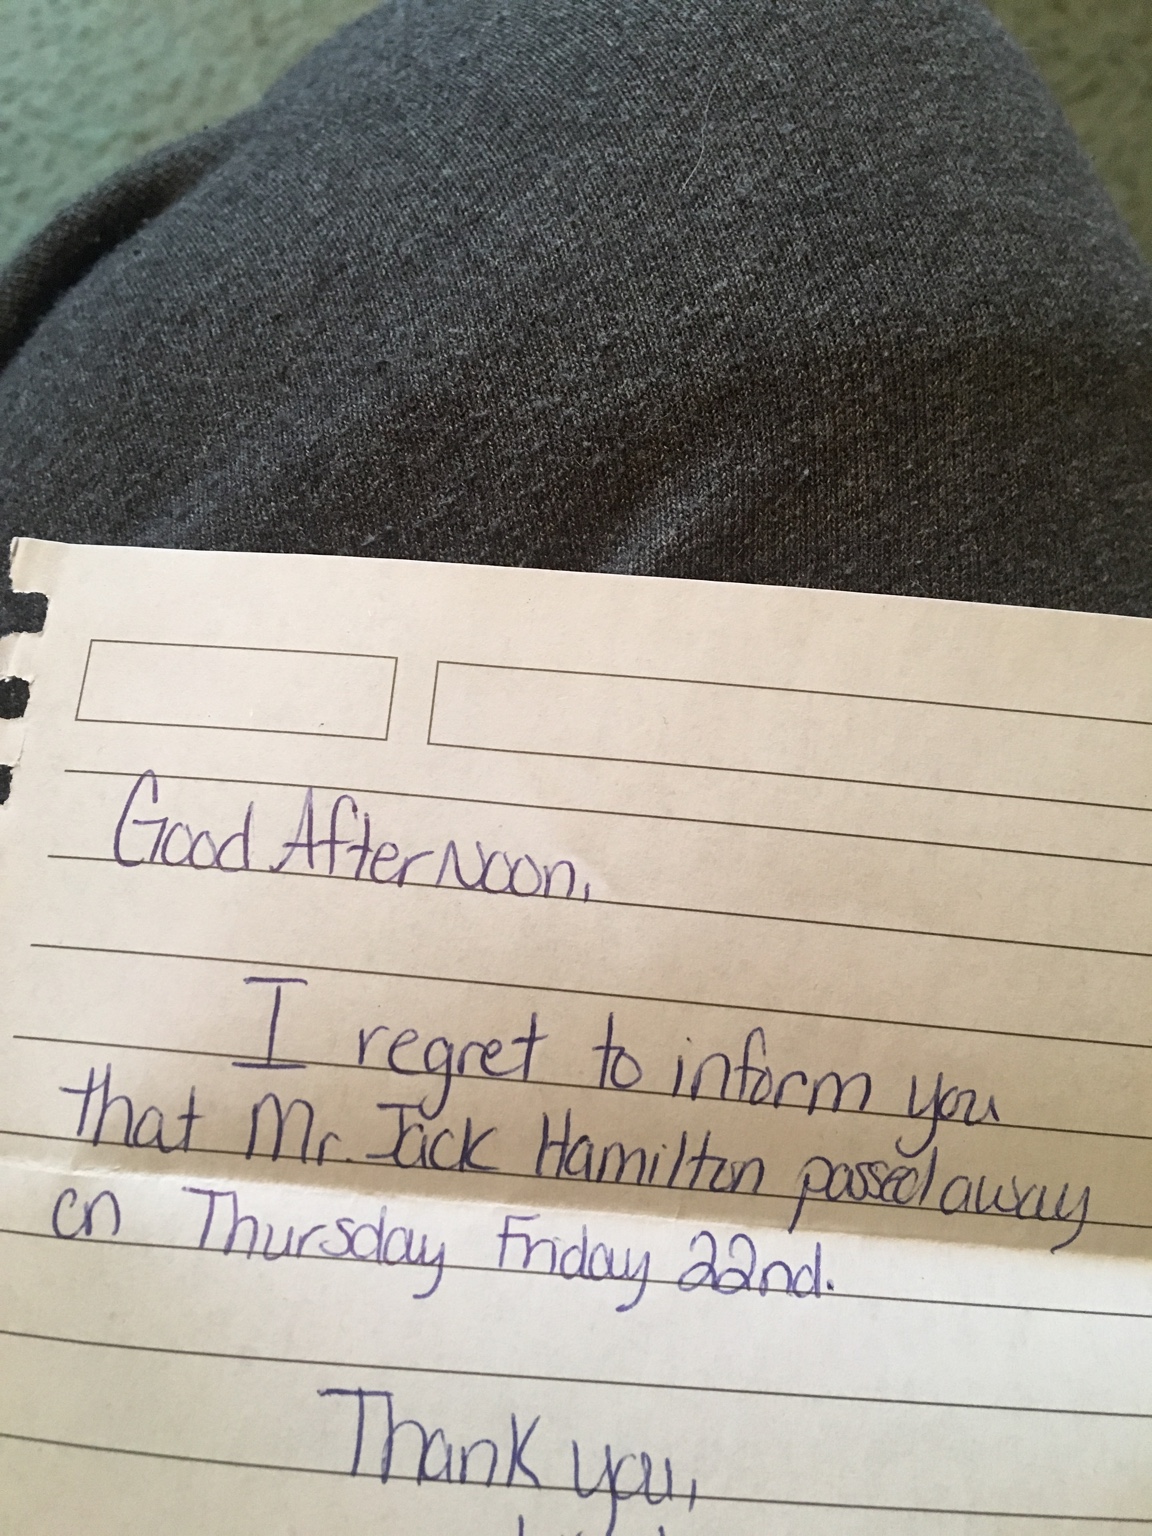 Good AfterNoon,
I regret to inform you
that Mr. Jack Hamilton passed away
on Thursday Friday 22nd.
Thank you,